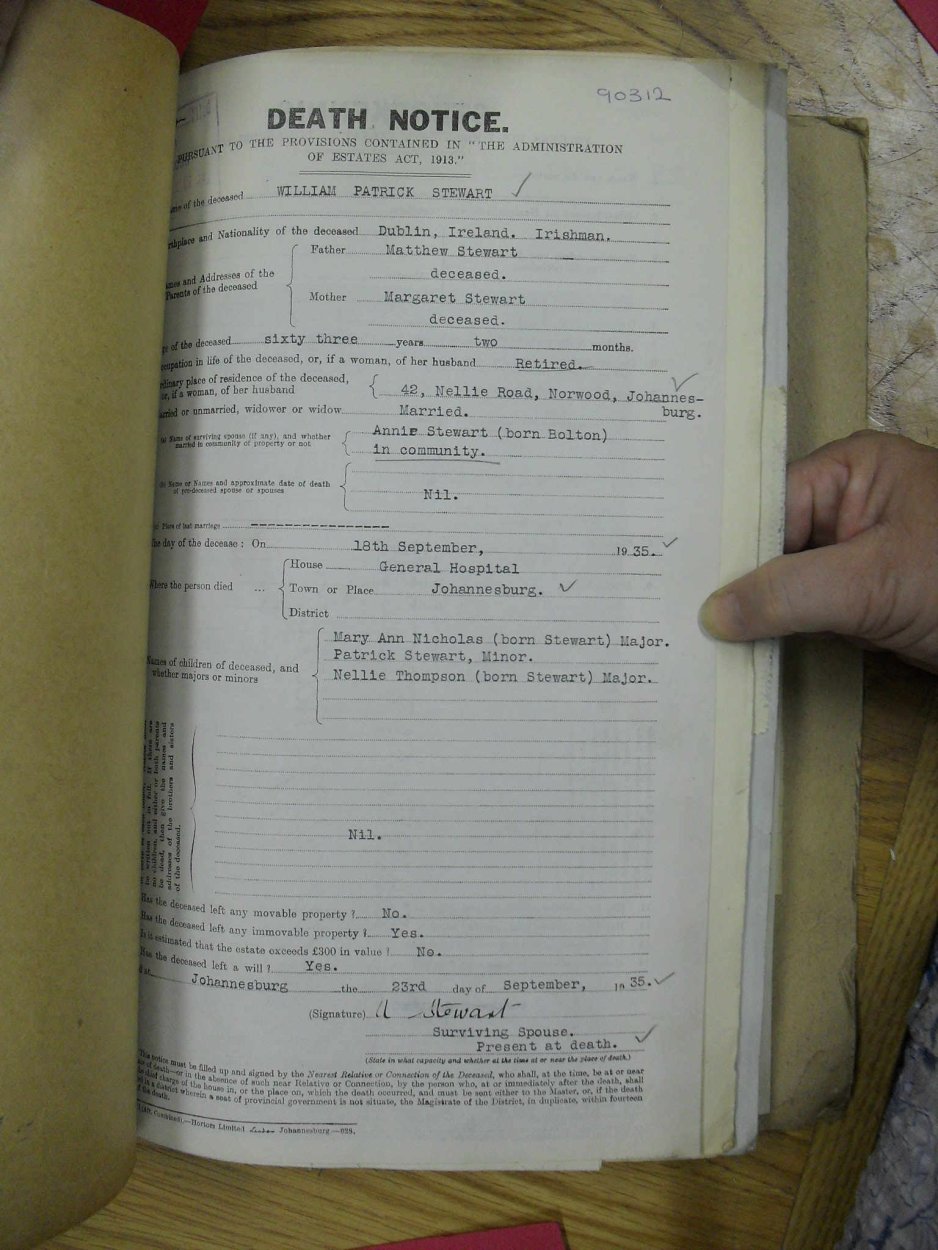 90312
DEATH NOTICE.
PURSUANT TO THE PROVISIONS CONTAINED IN "THE ADMINISTRATION
OF ESTATES ACT, 1913."
of the deceased WILLIAM PATRICK STEWART
and Nationality of the deceased Dublin, Ireland. Irishman.
Father Matthew Stewart
deceased.
and Addresses of the
Parents of the deceased
Mother Margaret Stewart
deceased.
of the deceased sixty three years two months.
in life of the deceased, or, if a woman, of her husband Retired.
place of residence of the deceased,
or, if a woman, of her husband 42, Nellie Road, Norwood, Johannes-
burg.
or unmarried, widower or widow Married.
(a) Name of surviving spouse (if any), and whether
married in community of property or not
Annie Stewart (born Bolton)
in community.
(b) Name or Names and approximate date of death
of pre-deceased spouse or spouses
Nil.
Place of last marriage ----------------
day of the decease: On 18th September, 1935.
House General Hospital
Where the person died ... Town or Place Johannesburg.
District
Names of children of deceased, and
whether majors or minors
Mary Ann Nicholas (born Stewart) Major.
Patrick Stewart, Minor.
Nellie Thompson (born Stewart) Major.
be dead, then give the names and
addresses of the brothers and sisters
of the deceased.
Nil.
Has the deceased left any movable property? No.
Has the deceased left any immovable property? Yes.
Is it estimated that the estate exceeds £300 in value? No.
Has the deceased left a will? Yes.
at Johannesburg the 23rd day of September, 1935.
(Signature) A Stewart
Surviving Spouse.
Present at death.
(State in what capacity and whether at the time at or near the place of death.)
This notice must be filled up and signed by the Nearest Relative or Connection of the Deceased, who shall, at the time, be at or near
of death—or in the absence of such near Relative or Connection, by the person who, at or immediately after the death, shall
charge of the house in, or the place on, which the death occurred, and must be sent either to the Master, or, if the death
in a district wherein a seat of provincial government is not situate, the Magistrate of the District, in duplicate, within fourteen
the death.
Hortors Limited Johannesburg—